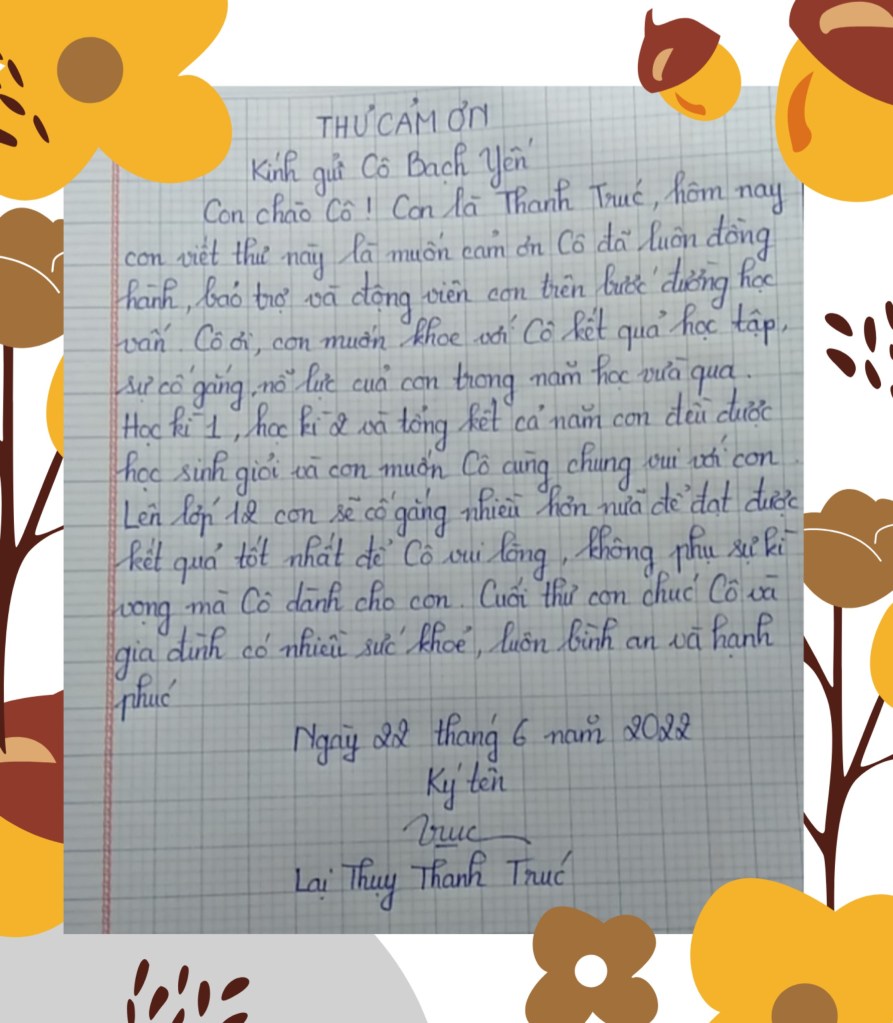 THƯ CẢM ƠN
Kính gửi Cô Bạch Yến
Con chào Cô! Con là Thanh Trúc, hôm nay
con viết thư này là muốn cảm ơn Cô đã luôn đồng
hành, bảo trợ và động viên con trên bước đường học
vấn. Cô ơi, con muốn khoe với Cô kết quả học tập,
sự cố gắng, nổ lực của con trong năm học vừa qua.
Học kì 1, học kì 2 và tổng kết cả năm con đều được
học sinh giỏi và con muốn Cô cùng chung vui với con.
Lên lớp 12 con sẽ cố gắng nhiều hơn nữa để đạt được
kết quả tốt nhất để Cô vui lòng, không phụ sự kì
vọng mà Cô dành cho con. Cuối thư con chúc Cô và
gia đình có nhiều sức khoẻ, luôn bình an và hạnh
phúc
Ngày 22 tháng 6 năm 2022
Ký tên
Trúc
Lại Thụy Thanh Trúc